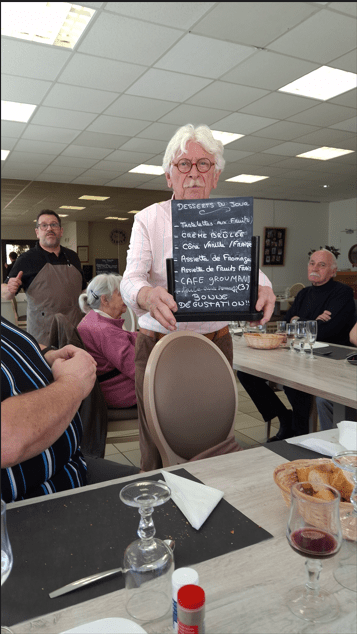 DESSERTS DU JOUR
- Tartelettes aux Fruits
- CRÈME BRÛLÉE
- Côné Vanille / Fraise
- Assiette de Fromage
- Assiette de Fruits Frais
- CAFE GOURMAND
(3)
BOULE
DÉGUSTATION